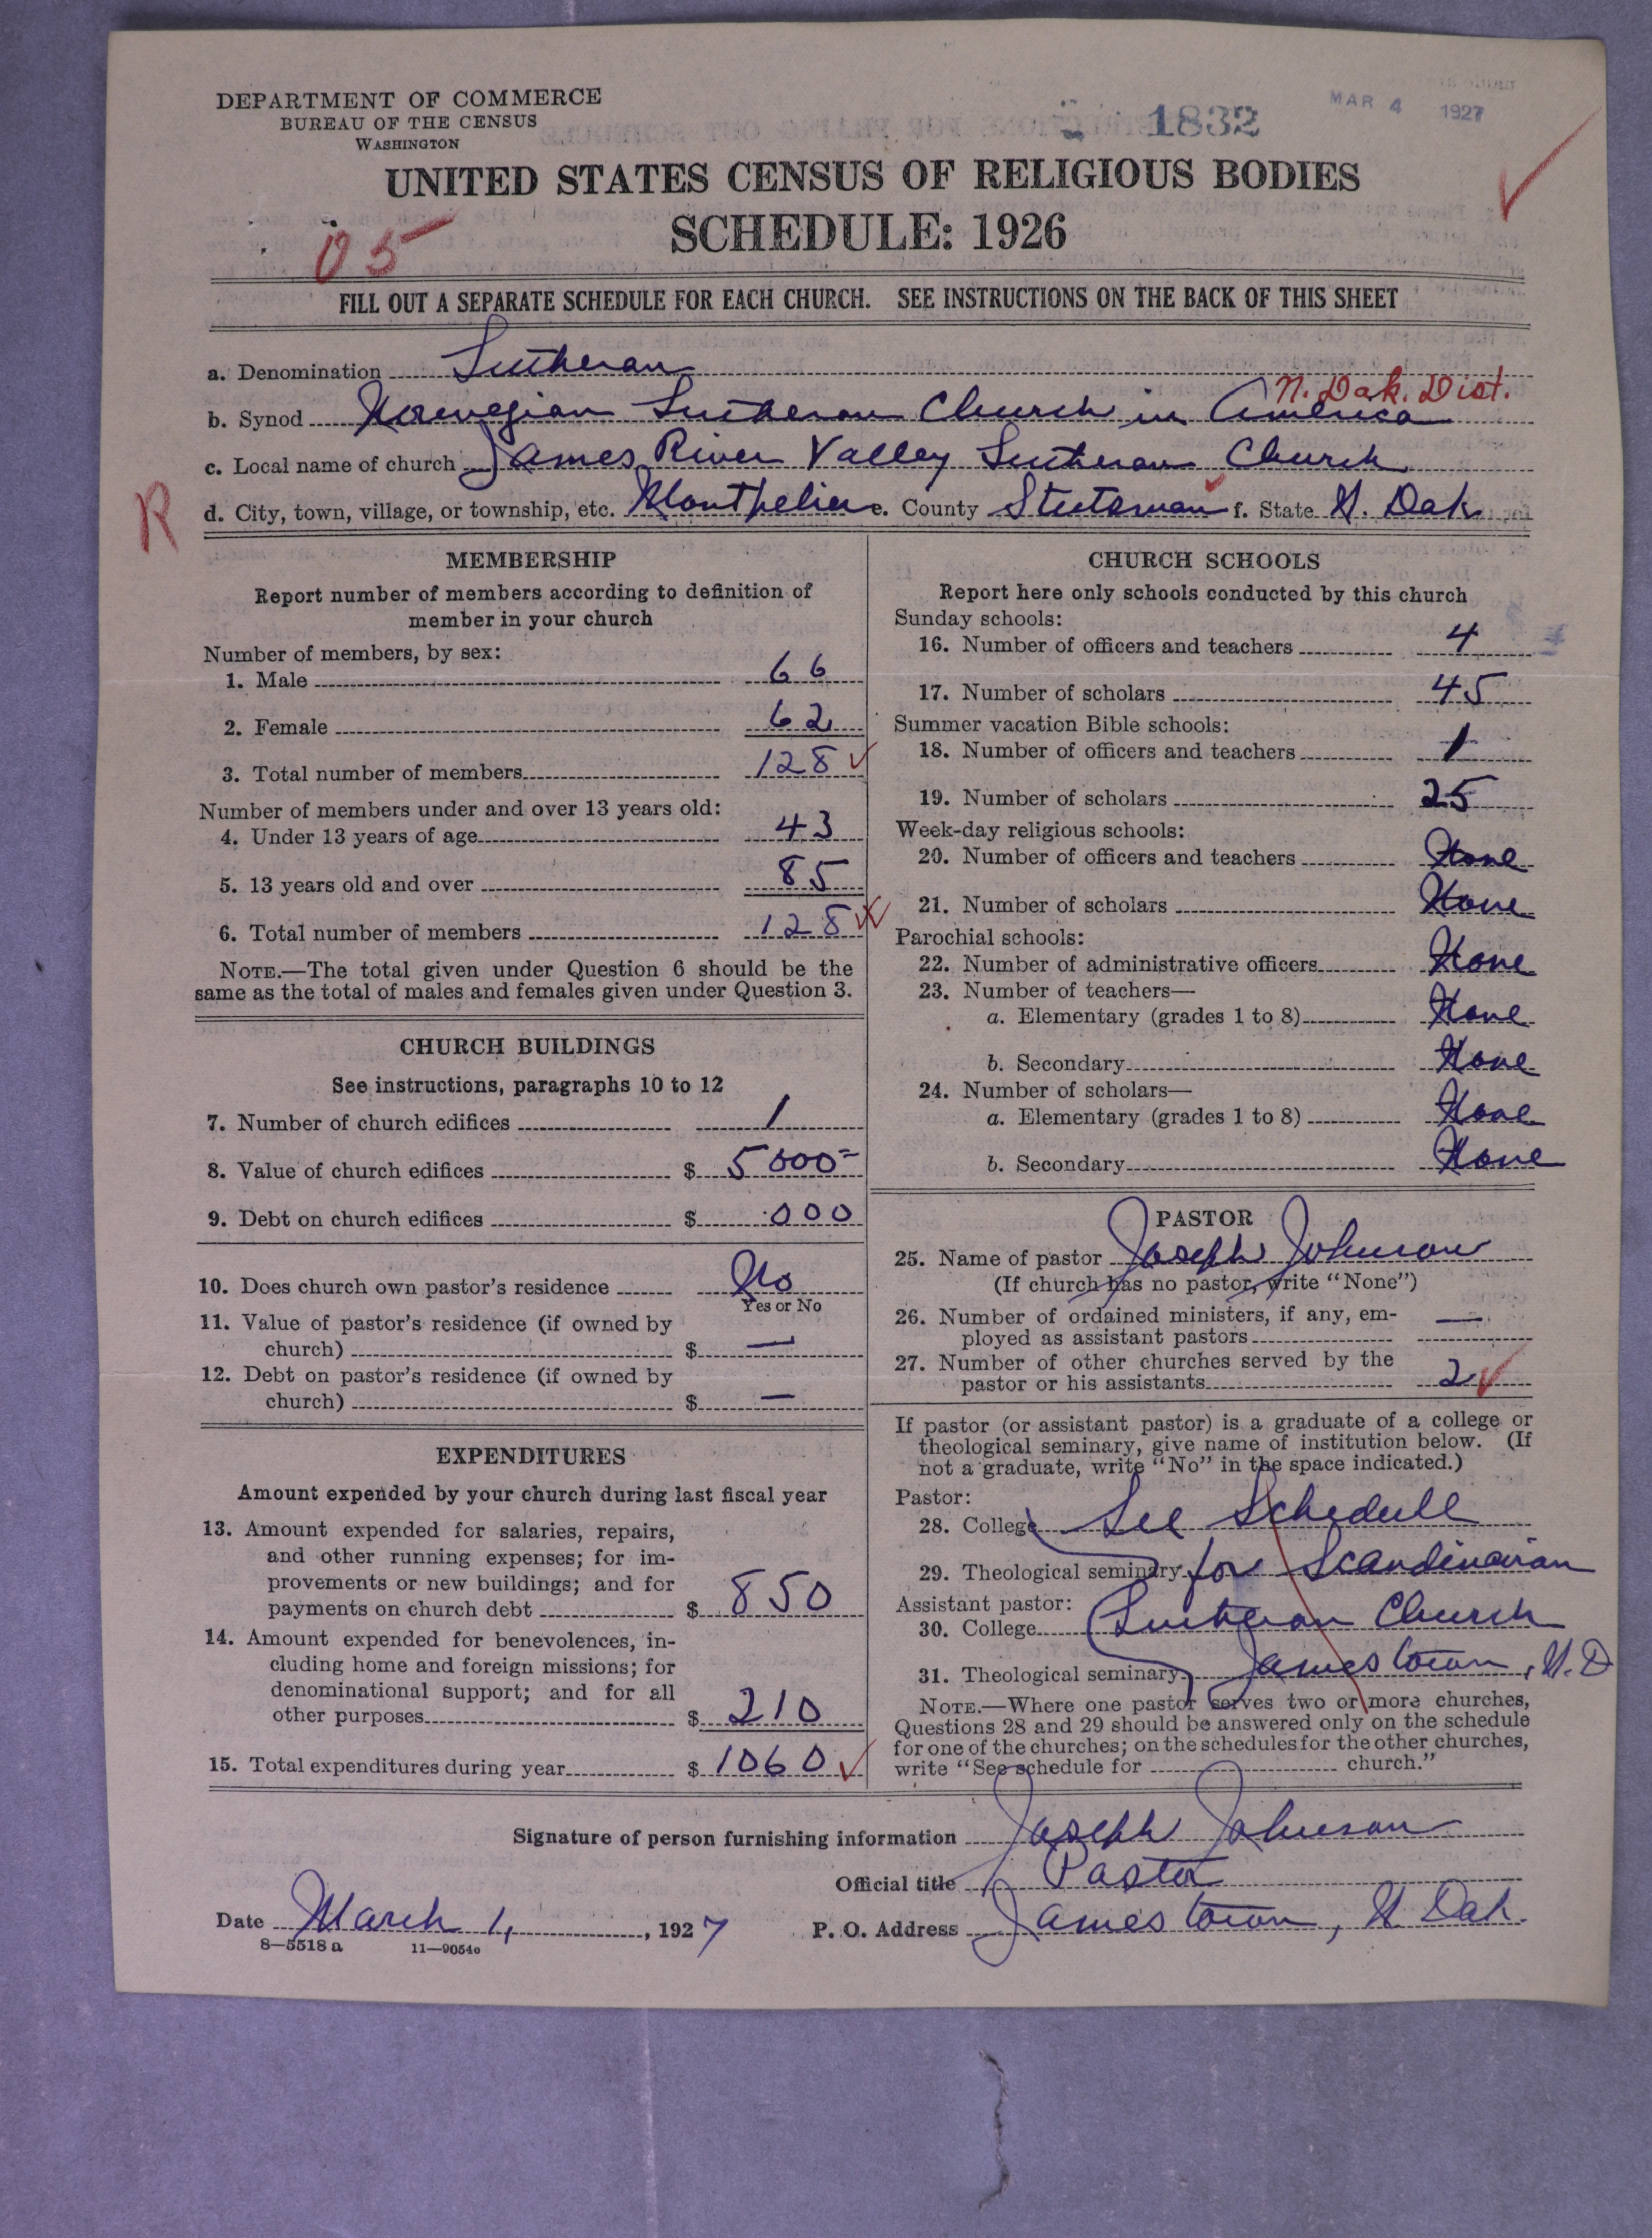 DEPARTMENT OF COMMERCE
BUREAU OF THE CENSUS
WASHINGTON
1832
MAR 4 1927
UNITED STATES CENSUS OF RELIGIOUS BODIES
SCHEDULE: 1926
05
FILL OUT A SEPARATE SCHEDULE FOR EACH CHURCH. SEE INSTRUCTIONS ON THE BACK OF THIS SHEET
a. Denomination Lutheran
N. Dak. Dist.
b. Synod Norwegian Lutheran Church in America
c. Local name of church James River Valley Lutheran Church
R
d. City, town, village, or township, etc. Montpelier e. County Stutsman f. State N. Dak
MEMBERSHIP
Report number of members according to definition of
member in your church
Number of members, by sex:
1. Male 66
2. Female 62
3. Total number of members 128
Number of members under and over 13 years old:
4. Under 13 years of age 43
5. 13 years old and over 85
6. Total number of members 128
NOTE.—The total given under Question 6 should be the
same as the total of males and females given under Question 3.
CHURCH BUILDINGS
See instructions, paragraphs 10 to 12
7. Number of church edifices 1
8. Value of church edifices $ 5000=
9. Debt on church edifices $ 000
10. Does church own pastor's residence No
Yes or No
11. Value of pastor's residence (if owned by
church) $ —
12. Debt on pastor's residence (if owned by
church) $ —
EXPENDITURES
Amount expended by your church during last fiscal year
13. Amount expended for salaries, repairs,
and other running expenses; for im-
provements or new buildings; and for
payments on church debt $ 850
14. Amount expended for benevolences, in-
cluding home and foreign missions; for
denominational support; and for all
other purposes $ 210
15. Total expenditures during year $ 1060
CHURCH SCHOOLS
Report here only schools conducted by this church
Sunday schools:
16. Number of officers and teachers 4
17. Number of scholars 45
Summer vacation Bible schools:
18. Number of officers and teachers 1
19. Number of scholars 25
Week-day religious schools:
20. Number of officers and teachers None
21. Number of scholars None
Parochial schools:
22. Number of administrative officers None
23. Number of teachers—
a. Elementary (grades 1 to 8) None
b. Secondary None
24. Number of scholars—
a. Elementary (grades 1 to 8) None
b. Secondary None
PASTOR
25. Name of pastor Joseph Johnson
(If church has no pastor, write "None")
26. Number of ordained ministers, if any, em-
ployed as assistant pastors —
27. Number of other churches served by the
pastor or his assistants 2
If pastor (or assistant pastor) is a graduate of a college or
theological seminary, give name of institution below. (If
not a graduate, write "No" in the space indicated.)
Pastor:
28. College See Schedule
29. Theological seminary for Scandinavian
Assistant pastor:
30. College Lutheran Church
31. Theological seminary Jamestown, N.D
NOTE.—Where one pastor serves two or more churches,
Questions 28 and 29 should be answered only on the schedule
for one of the churches; on the schedules for the other churches,
write "See schedule for church."
Signature of person furnishing information Joseph Johnson
Official title Pastor
Date March 1, 1927 P. O. Address Jamestown, N. Dak.
8—5518 a 11—9054c